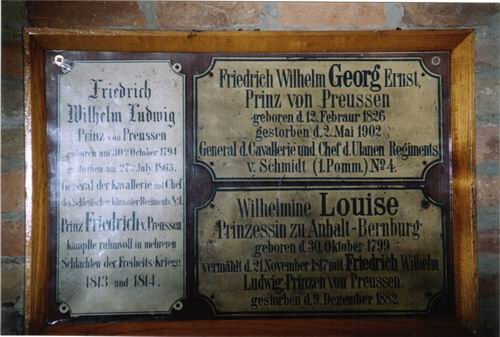 Friedrich
Wilhelm Ludwig
Prinz von Preussen
geboren am 30ten October 1794
gestorben am 27ten July 1863.
General der Kavallerie und Chef
des Schlesischen Kürassier Regiments No 1.
Prinz Friedrich v. Preussen
kämpfte ruhmvoll in mehreren
Schlachten der Freiheits-Kriege
1813 und 1814.
Friedrich Wilhelm Georg Ernst,
Prinz von Preussen
geboren d. 12. Februar 1826
gestorben d. 2. Mai 1902.
General d. Cavallerie und Chef d. Ulanen Regiments
v. Schmidt (1. Pomm.) No 4.
Wilhelmine Louise
Prinzessin zu Anhalt-Bernburg
geboren d. 30. Oktober 1799
vermählt d. 21. November 1817 mit Friedrich Wilhelm
Ludwig, Prinzen von Preussen.
gestorben d. 9. Dezember 1882.